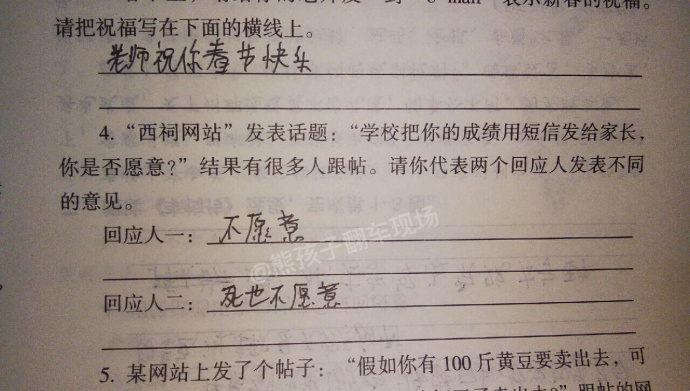 表示新春的祝福。
请把祝福写在下面的横线上。
老师祝你春节快乐
4. “西祠网站”发表话题：“学校把你的成绩用短信发给家长，
你是否愿意？”结果有很多人跟帖。请你代表两个回应人发表不同
的意见。
回应人一：不愿意
@熊孩子翻车现场
回应人二：死也不愿意
5. 某网站上发了个帖子：“假如你有 100 斤黄豆要卖出去，可